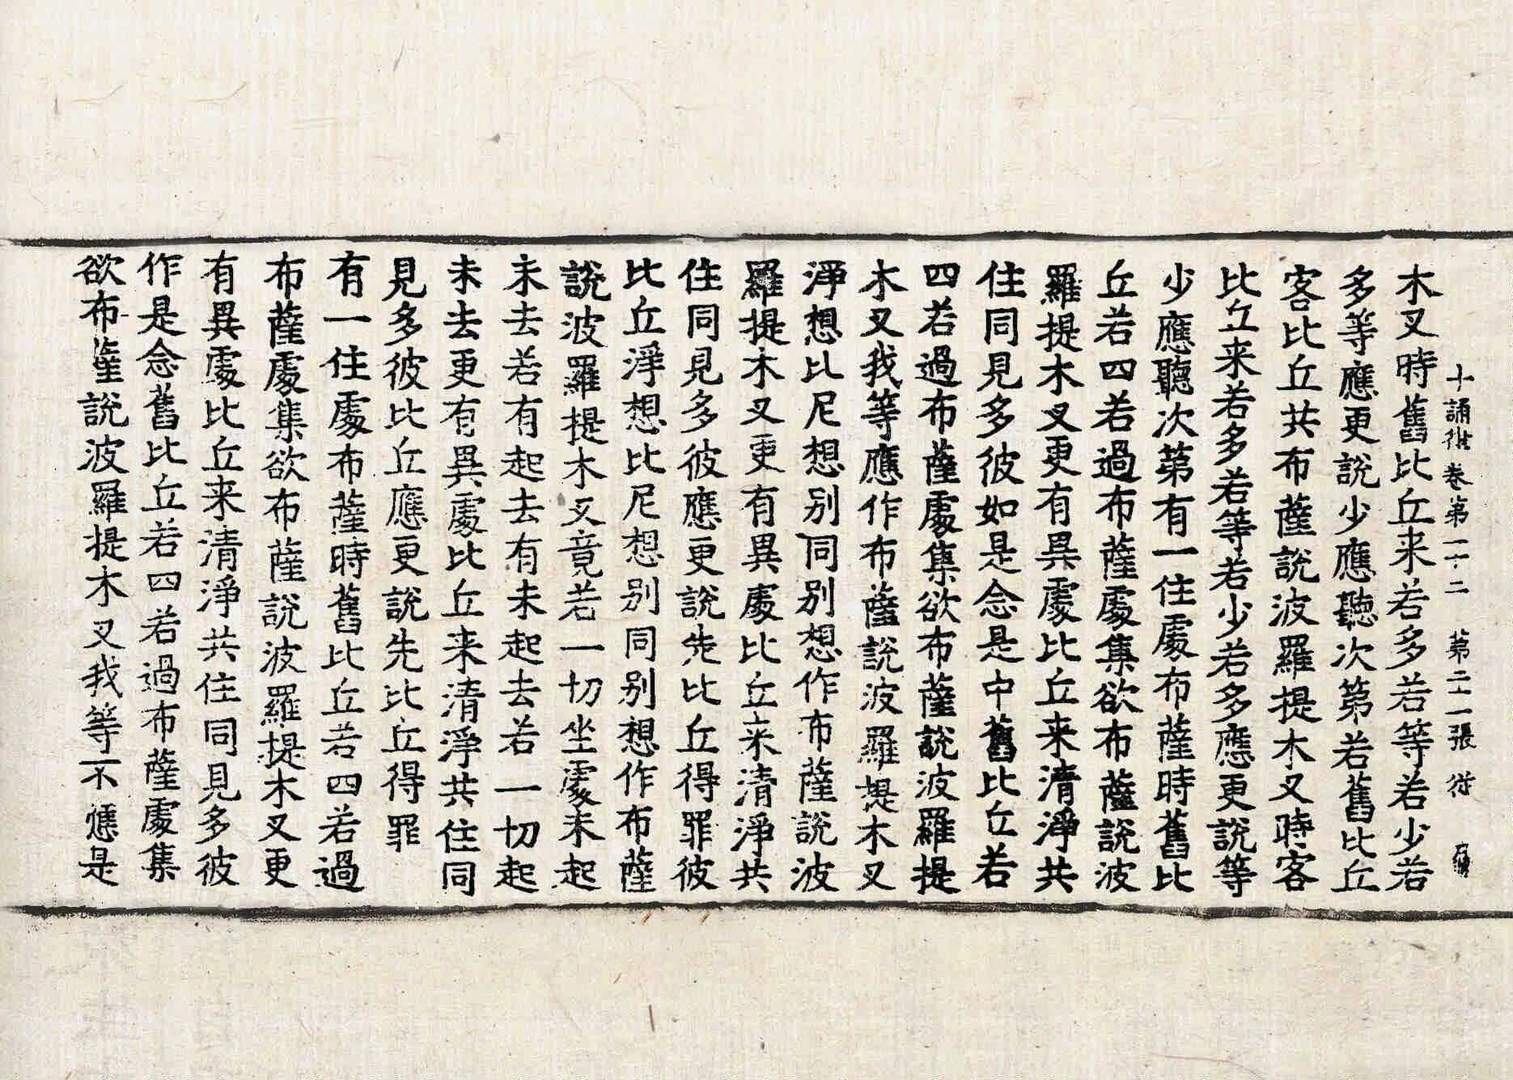 十誦律卷第二十二　第二十一張　從
木叉時舊比丘来若多若等若少若
多等應更說少應聽次第若舊比丘
客比丘共布薩說波羅提木叉時客
比丘来若多若等若少若多應更說等
少應聽次第有一住處布薩時舊比
丘若四若過布薩處集欲布薩說波
羅提木叉更有異處比丘来清淨共
住同見多彼如是念是中舊比丘若
四若過布薩處集欲布薩說波羅提
木叉我等應作布薩說波羅提木叉
淨想比尼想別同別想作布薩說波
羅提木叉更有異處比丘来清淨共
住同見多彼應更說先比丘得罪彼
比丘淨想比尼想別同別想作布薩
說波羅提木叉竟若一切坐處未起
未去若有起去有未起去若一切起
未去更有異處比丘来清淨共住同
見多彼比丘應更說先比丘得罪
有一住處布薩時舊比丘若四若過
布薩處集欲布薩說波羅提木叉更
有異處比丘来清淨共住同見多彼
作是念舊比丘若四若過布薩處集
欲布薩說波羅提木叉我等不應是